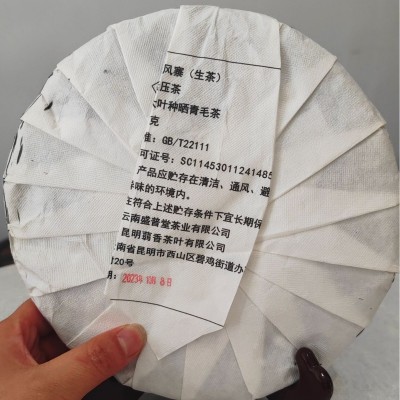 风寨（生茶）
压茶
叶种晒青毛茶
克
准：GB/T22111
可证号：SC11453011241485
产品应贮存在清洁、通风、避
味的环境内。
在符合上述贮存条件下宜长期保
云南盛普堂茶业有限公司
昆明翡香茶叶有限公司
南省昆明市西山区碧鸡街道办
20号
期：2023年10月
日